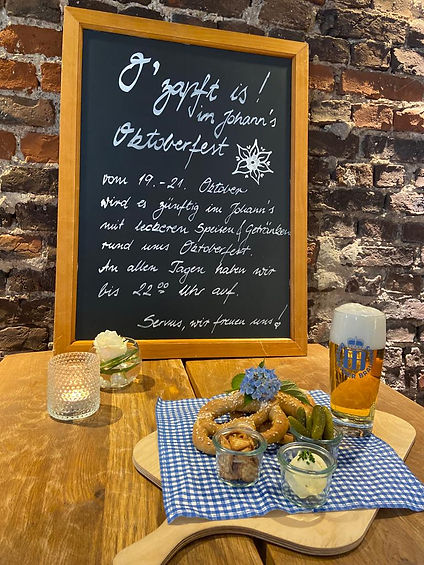 O' zapft is!
im Johann's
Oktoberfest
vom 19.-21. Oktober
wird es zünftig im Johann's
mit leckeren Speisen & Getränken
rund ums Oktoberfest.
An allen Tagen haben wir
bis 22⁰⁰ Uhr auf.
Servus, wir freuen uns!